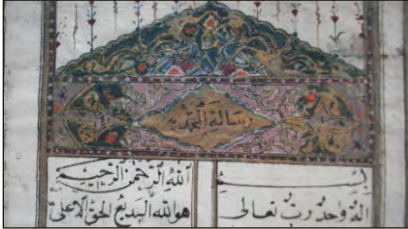 رسالة الحمدية
بسم الله الرحمن الرحيم
اله واحد رب تعالى هو الله البديع الحق الاعلى